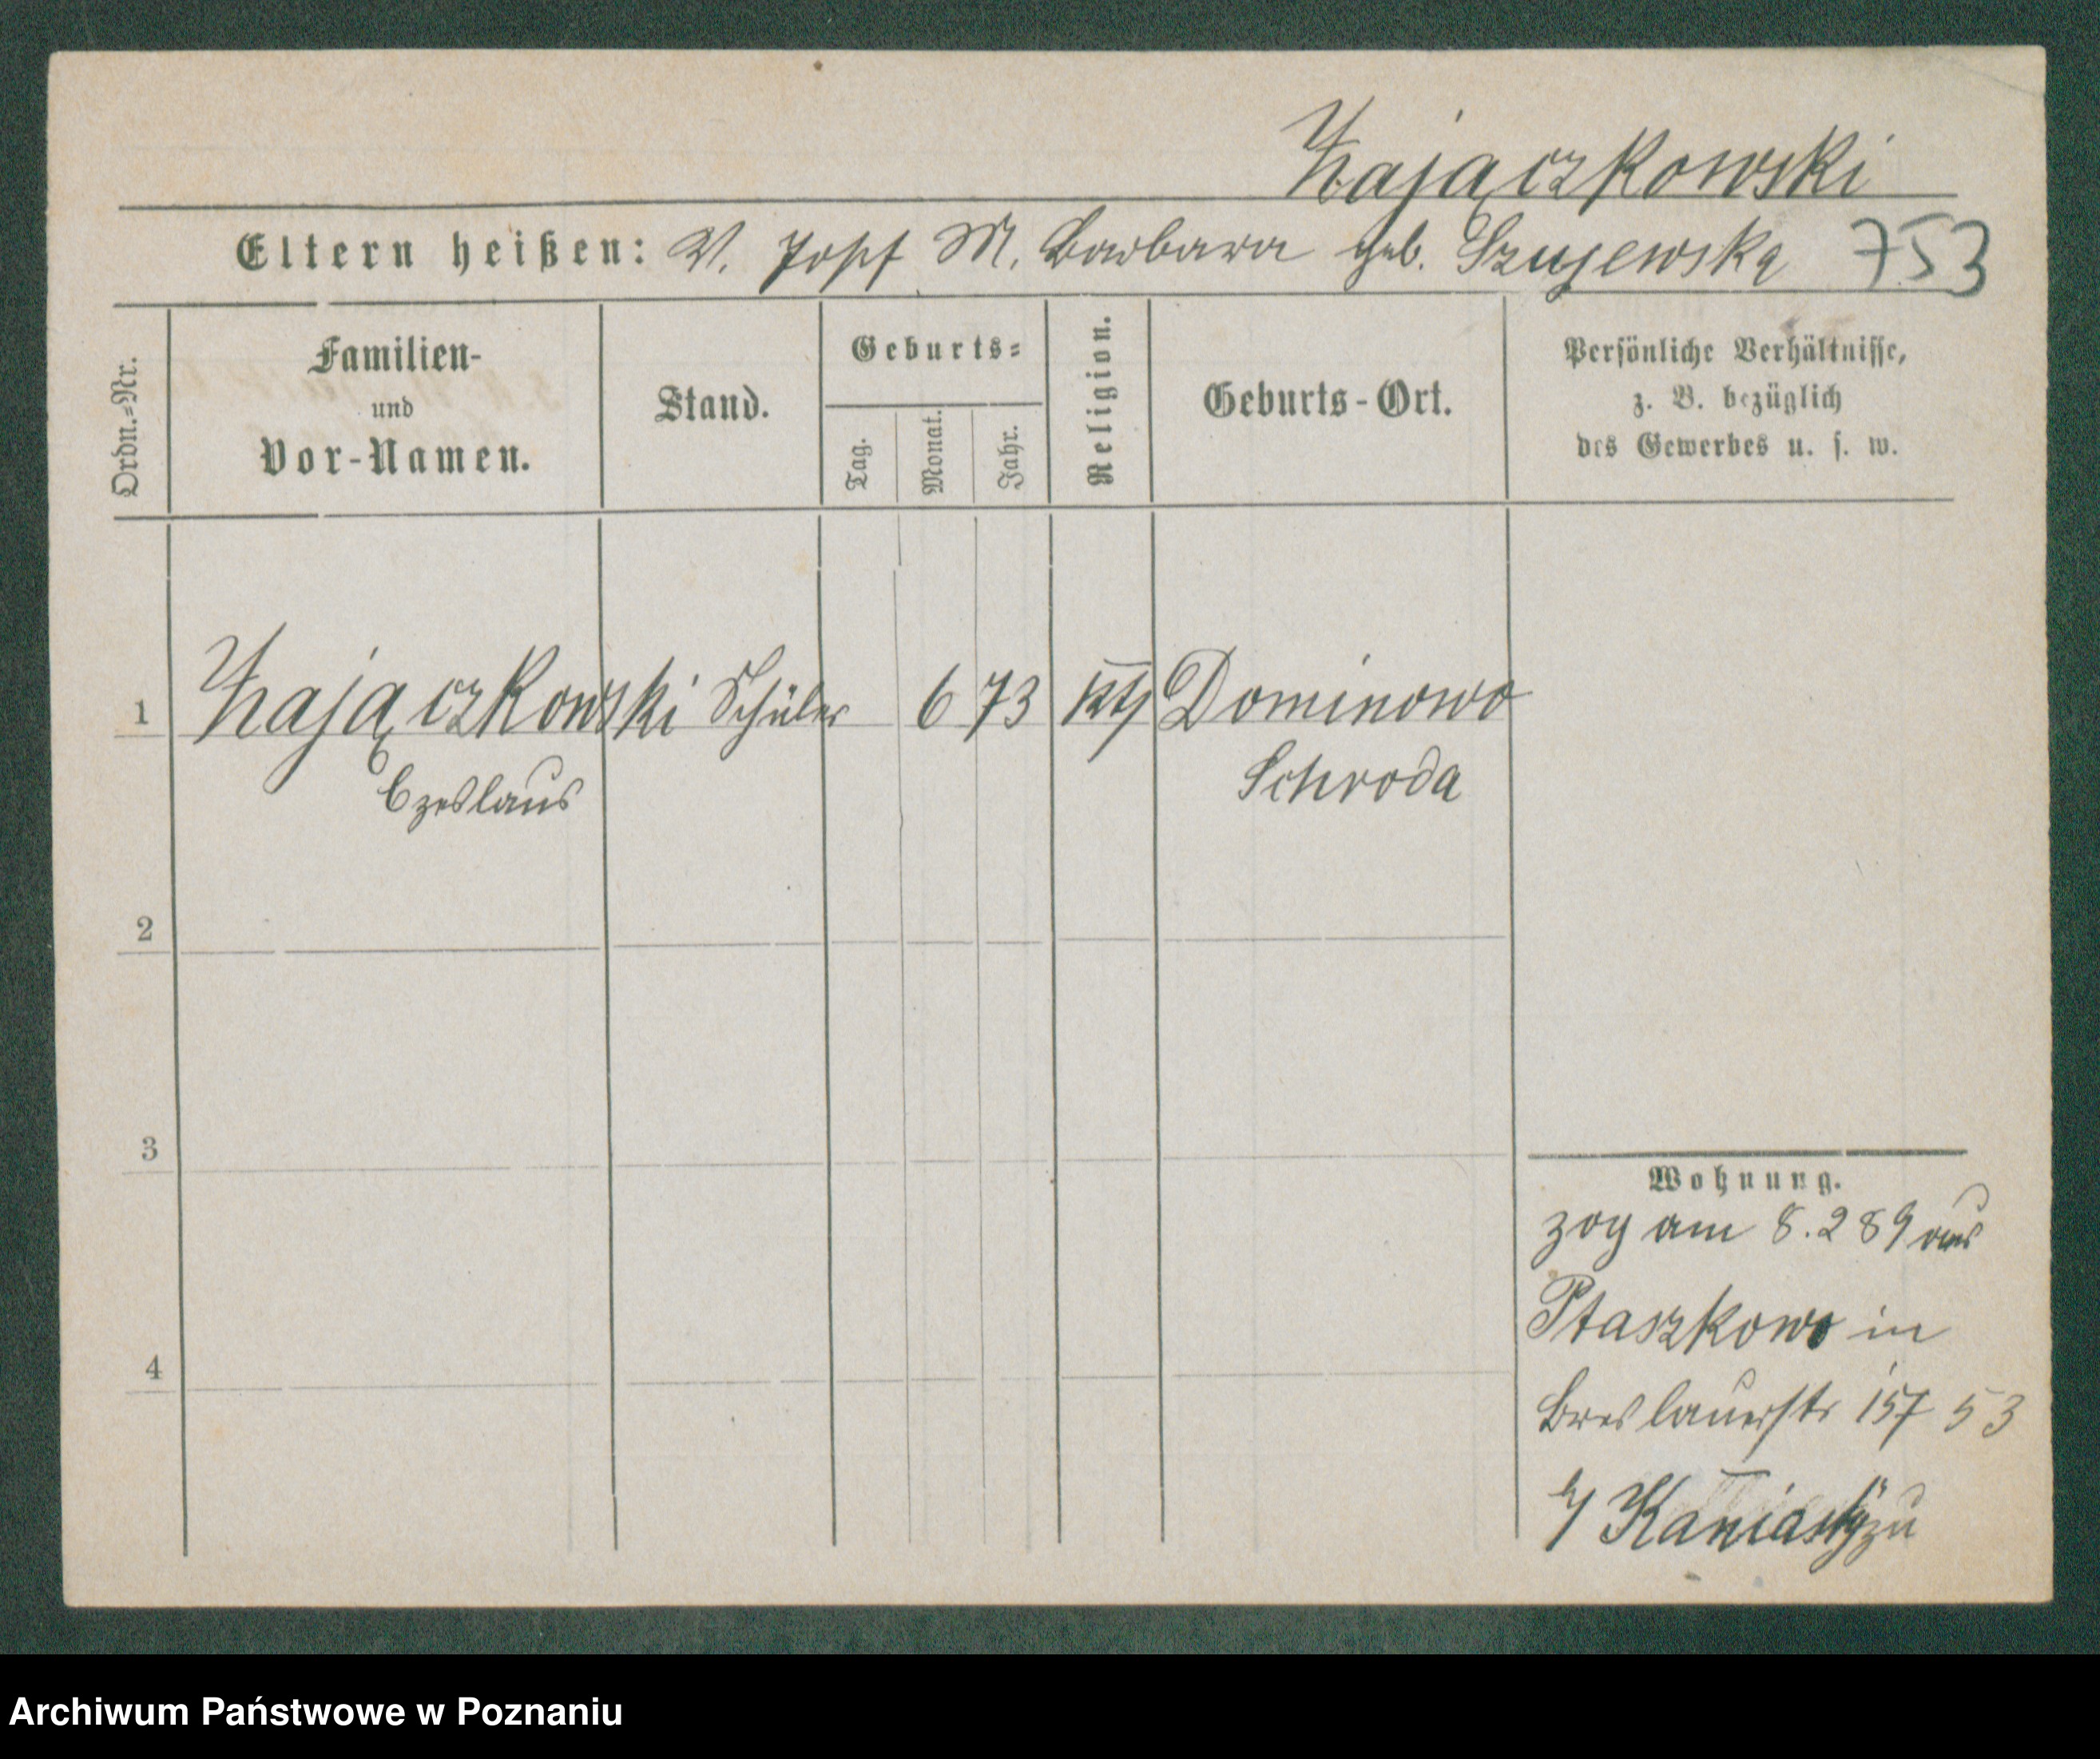 Zającźkowski
Eltern heißen: V. Josef M. Barbara geb. Szujewska 753
Ordn.=Nr.
Familien-
und
Vor-Namen.
Stand.
Geburts=
Tag.
Monat.
Jahr.
Religion.
Geburts-Ort.
Persönliche Verhältnisse,
z. B. bezüglich
des Gewerbes u. s. w.
1 Zajączkowski Schüler 6 73 kth Dominowo
Czeslaus Schroda
2
3
4
Wohnung.
zog am 8.2 89 aus
Ptaszkowo in
Breslauerstr 157 53
b/ zu
Archiwum Państwowe w Poznaniu